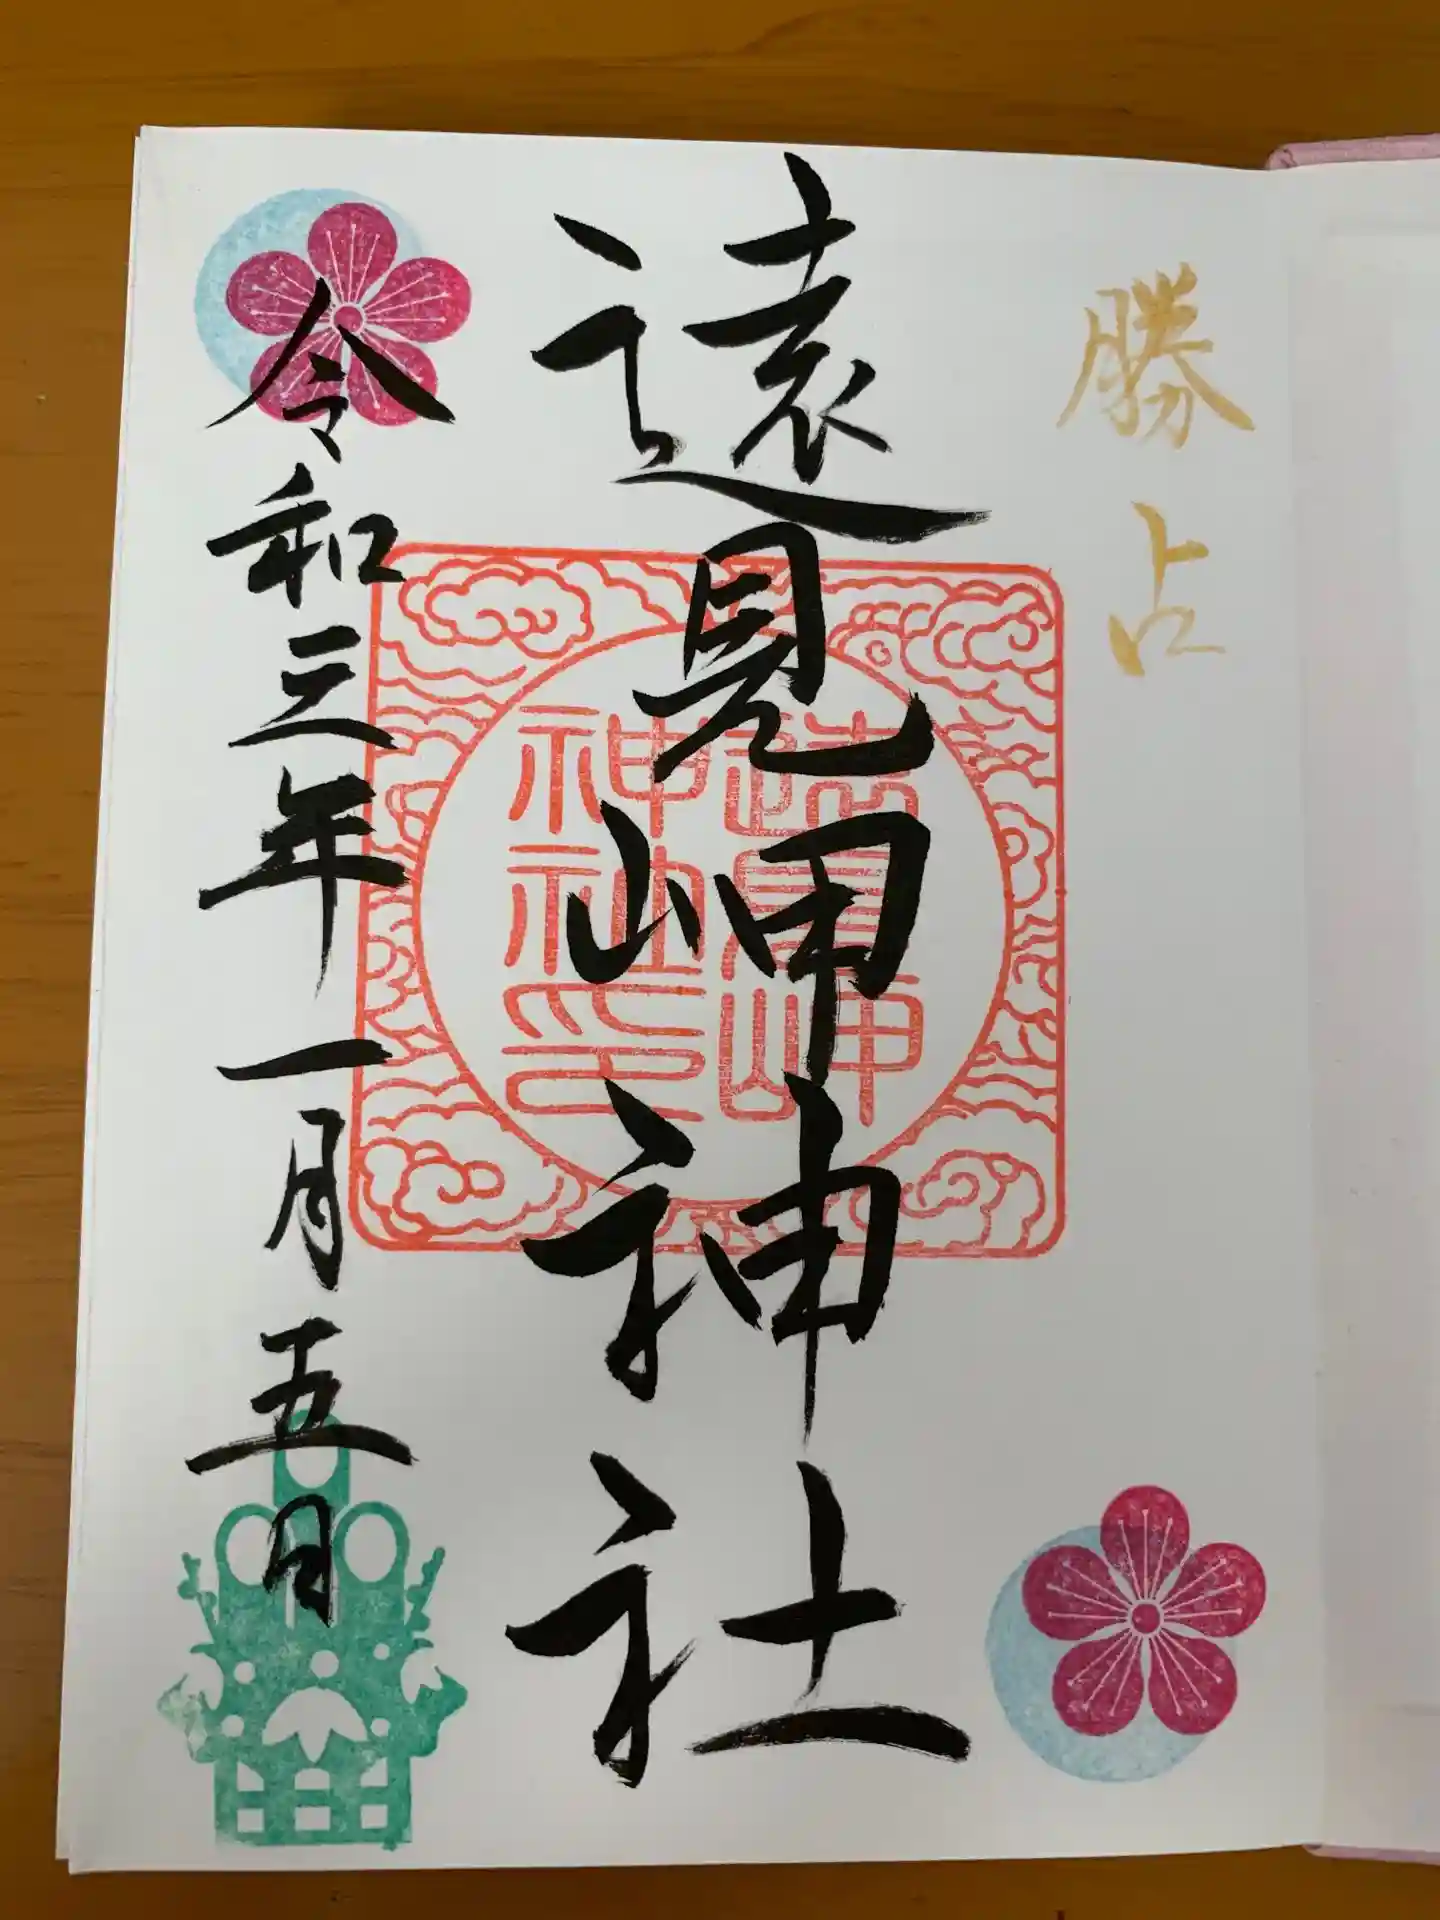 勝占
遠見岬神社
遠見岬
神社印
令和三年一月五日